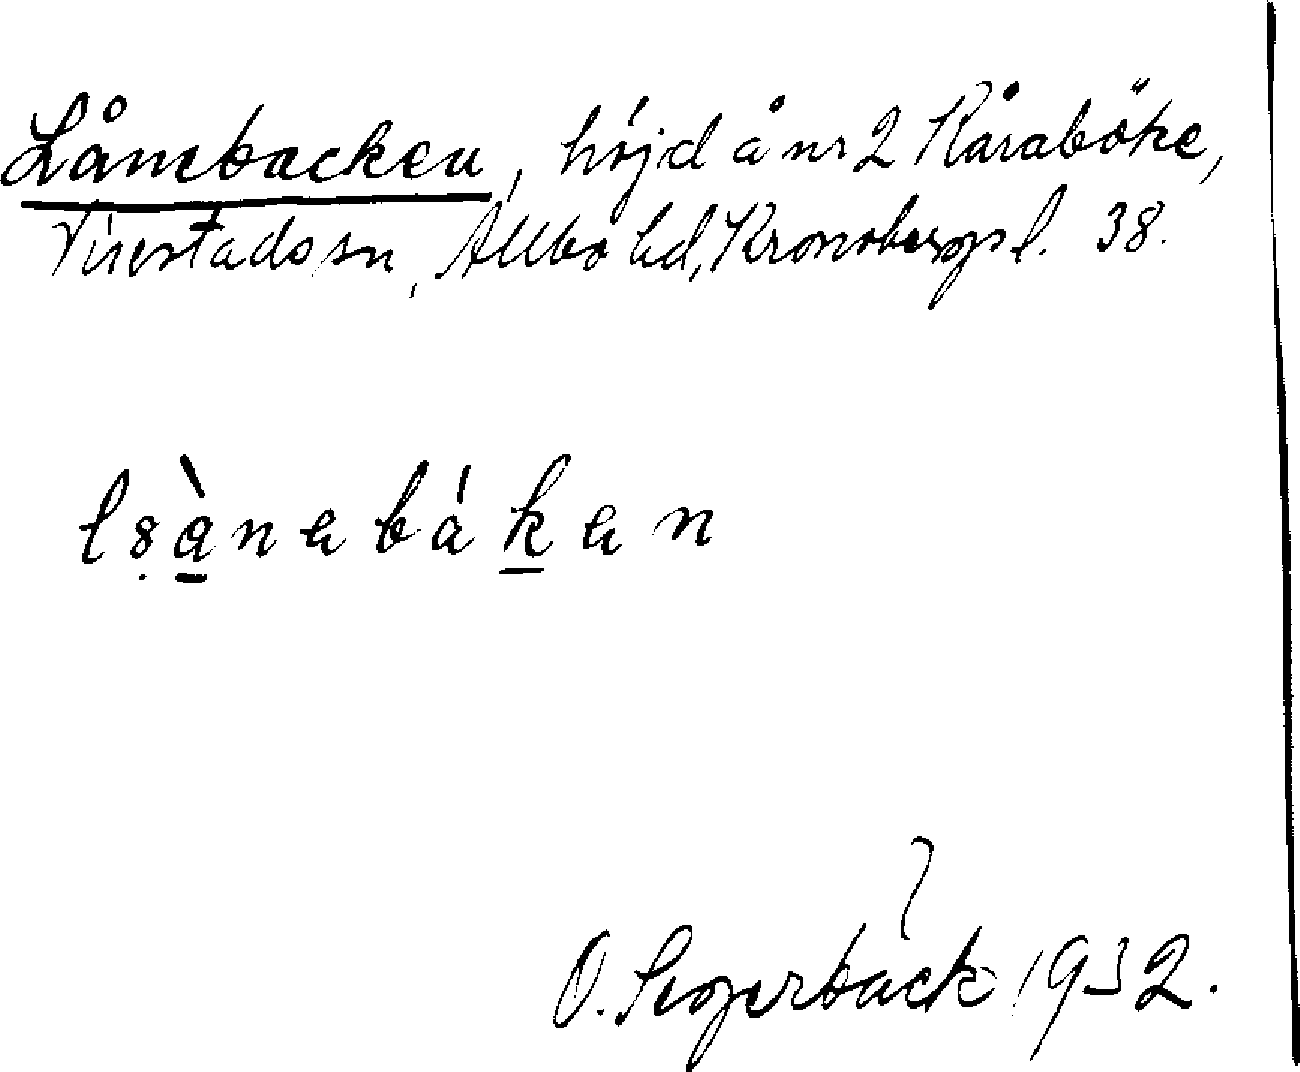 Lånebacken, höjd å nr 2 Råraböke,
Virestads sn, Allbo hd, Kronobergs l. 38.
O. Segerbäck 1932.